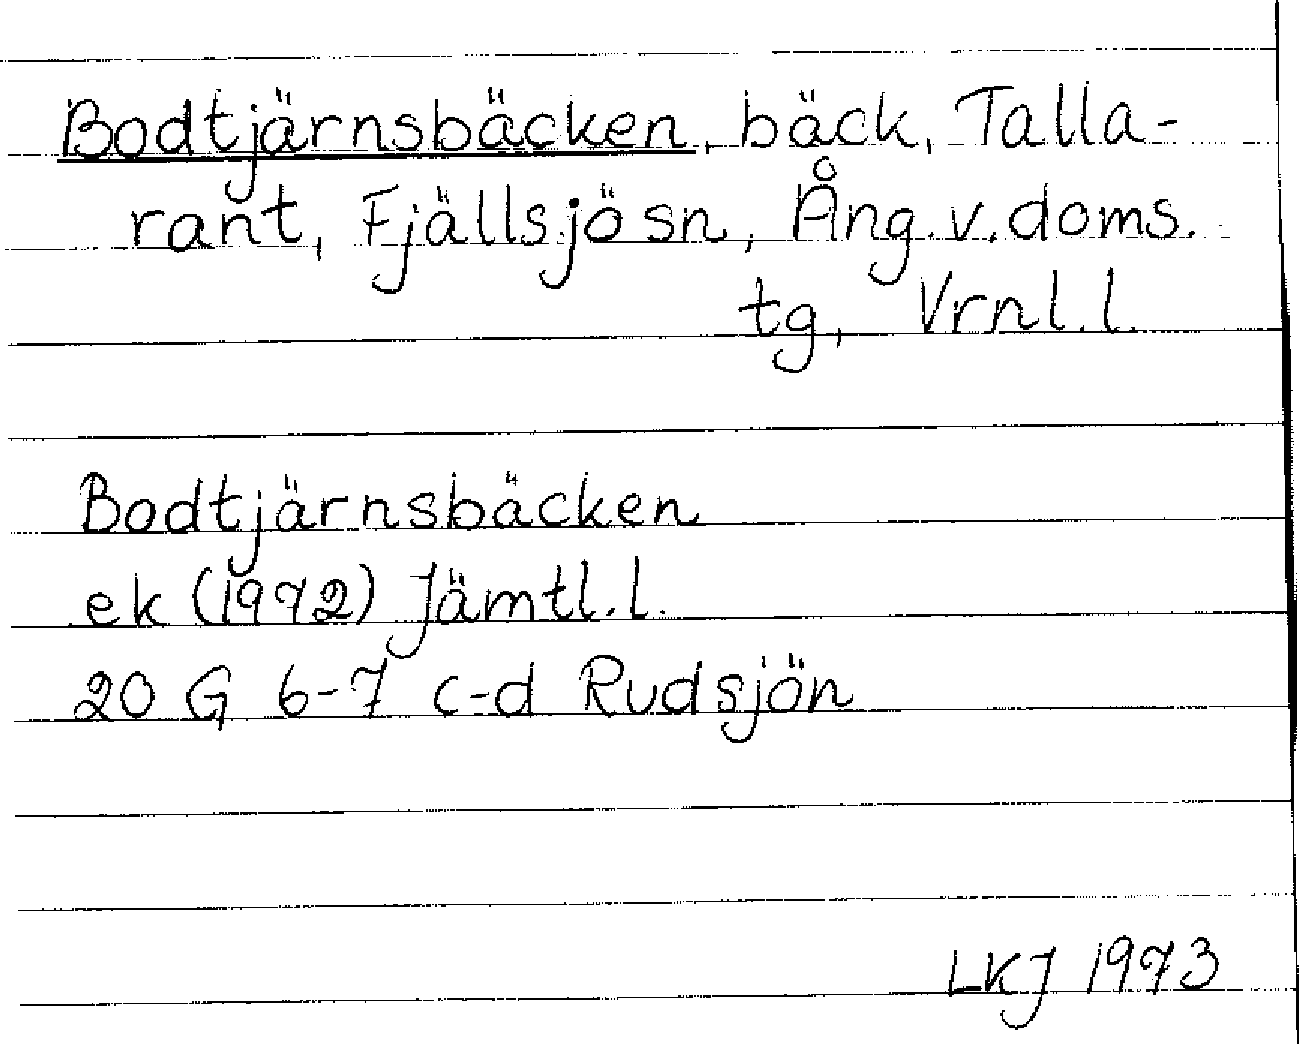 Bodtjärnsbäcken, bäck, Talla-
rant, Fjällsjö sn, Ång.v.doms.
tg, Vrnl.l.
Bodtjärnsbäcken
ek (1972) Jämtl.l.
20 G 6-7 c-d Rudsjön
LKJ 1973